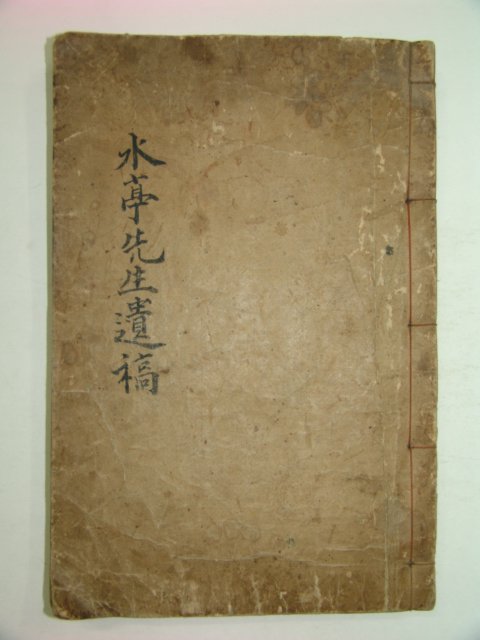 水亭先生遺稿